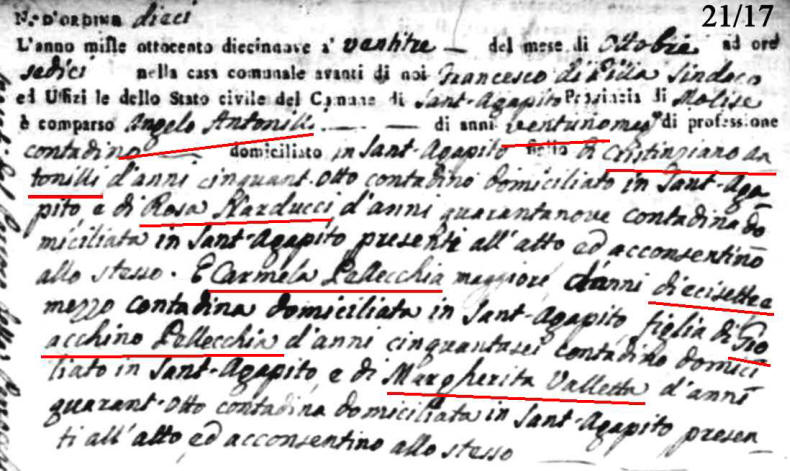 21/17
N.º D'ORDINE dieci
L'anno mille ottocento diecinnove a' ventitre — del mese di Ottobre ad ore
sedici nella casa comunale avanti di noi Francesco di Sindaco
ed Uffiziale dello Stato civile del Comune di Sant-Agapito Provincia di Molise
è comparso Angelo Antonilli — — di anni ventuno di professione
contadino — domiciliato in Sant-Agapito figlio di An
tonilli d'anni cinquant-otto contadino domiciliato in Sant-Aga
pito e di Rosa Narducci d'anni quarantanove contadina do
miciliata in Sant-Agapito presenti all'atto ed acconsentino
allo stesso. E Carmela Pellecchia maggiore d'anni diecisette e
mezzo contadina domiciliata in Sant-Agapito figlia di Gio
acchino Pellecchia d'anni cinquantasei contadino domici
liato in Sant-Agapito e di Margherita Valletta d'anni
quarant-otto contadina domiciliata in Sant-Agapito presen
ti all'atto ed acconsentino allo stesso —